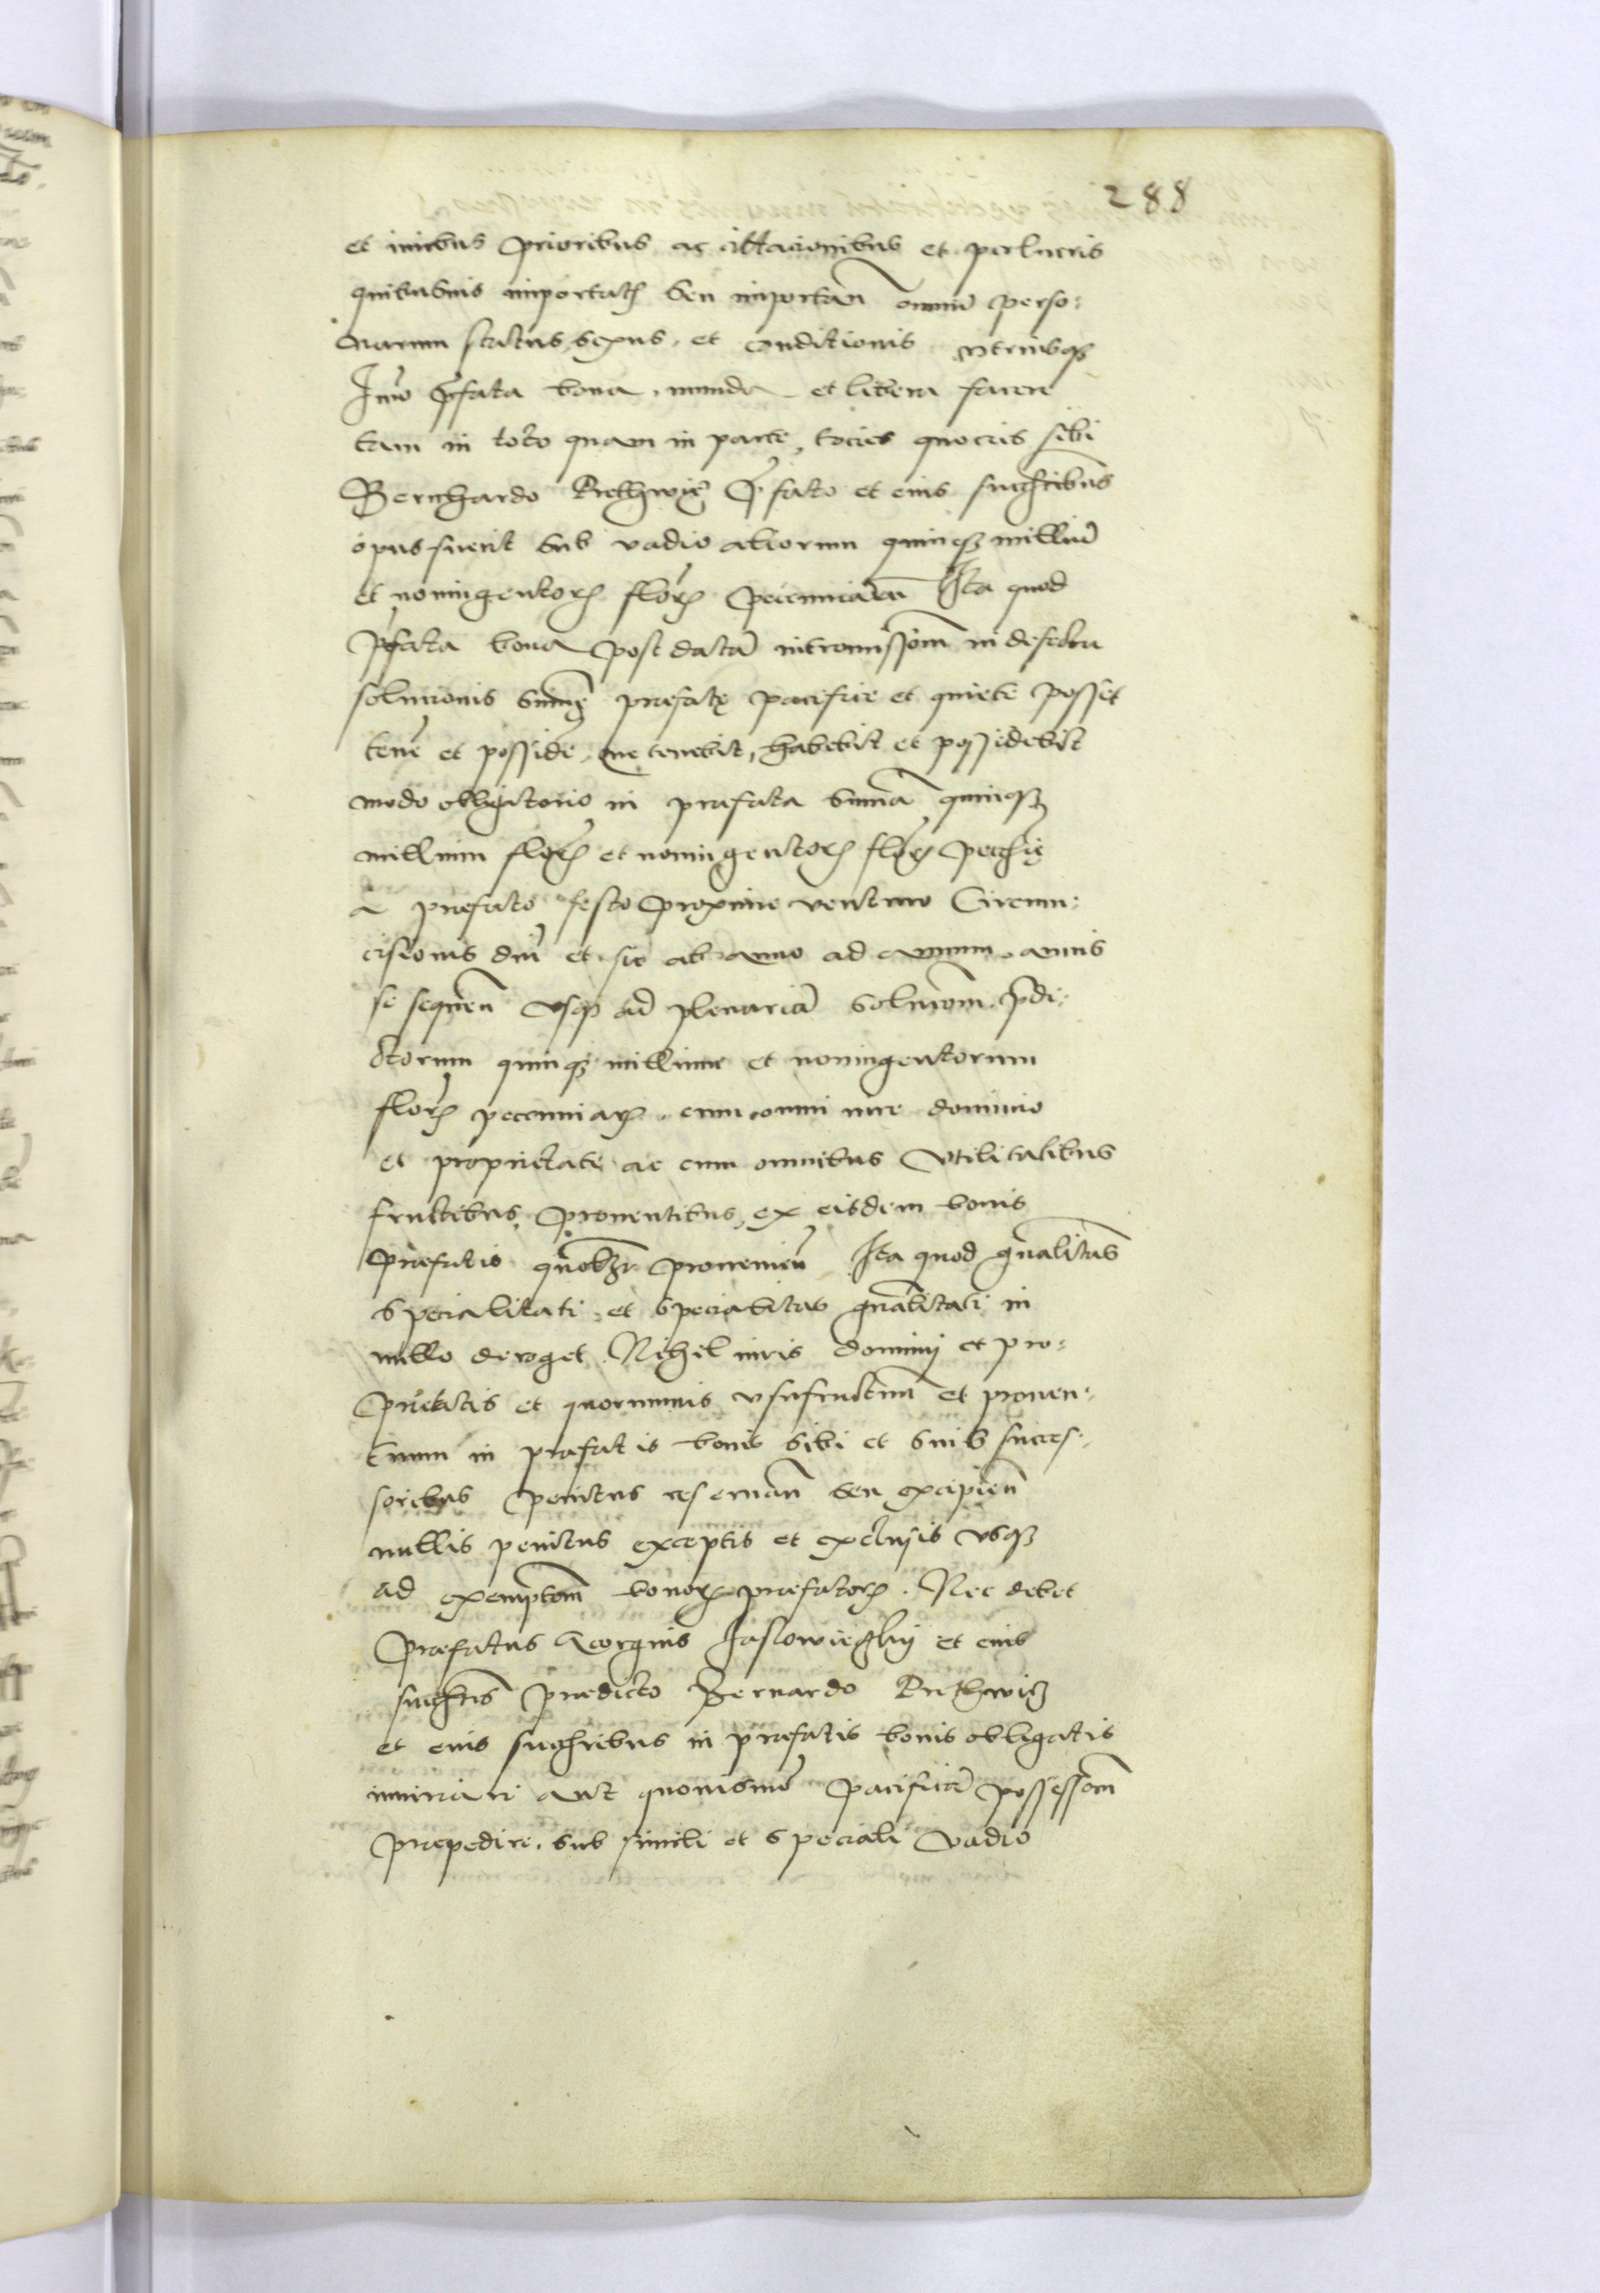 288
et iuribus prioribus ac cittacionibus et perlucris
quibusuis importatis seu importan omniu perso:
narum status, sexus, et conditionis utriusq
Imo p̃fata bona, munda et libera facere
tam in toto quam in parte, tocies quocies sibi
Bernhardo p̃fato et eius succ̃ribus
opus fuerit sub vadio aliorum quinq milliũ
et noningentorꝝ florꝝ pecuniariũ Ita quod
p̃fata bona post datã intromissionẽ in defectu
solucionis summę praefatę pacifice et quiete posset
tenẽ et possidẽ, ne tenebit, habebit et possidebit
modo obligatorio in praefata summa quinq
millium florꝝ et noningentorꝝ florꝝ pecunię
a praefato festo proxime venturo Circum:
cisionis dni et sic ab anno ad annum annis
se sequen usq ad plenariã solucionẽ p̃di:
ctorum quinq millium et noningentorum
florꝝ pecuniarꝝ cum omni iure dominio
et proprietate ac cum omnibus utilitatibus
fructibus, prouentibus, ex eisdem bonis
praefatis quõlꝫ prouenien Ita quod gñalitas
specialitati et specialitas gñalitati in
nullo deroget Nihil iuris dominij et pro:
prietatis et quorumuis usufructuum et prouen:
tuum in praefatis bonis sibi et suis succes:
soribus penitus reseruan seu excipien
nullis penitus exceptis et exclusis usq
ad exemptionẽ bonorꝝ praefatorꝝ. Nec debet
Praefatus Georgius Jaslowieczky et eius
succ̃res praedicto Bernardo
et eius succ̃ribus in praefatis bonis obligatis
iniuriari aut quouismõ pacificã possessionẽ
praepedire, sub simili et speciali vadio